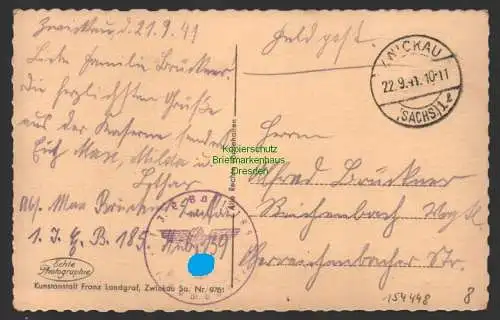 Zwickau, d. 21.9.41
Liebe Familie Brückner!
Die herzlichsten Grüße
aus der Kaserne sendet
Euch Max, Milda u.
Lothar
Abs. Max Brückner
1. J. E. B. 185.
Feldpost.
ZWICKAU
22.9.41.10-11
(SACHS) 1
Herrn
Alfred Brückner
Reichenbach Vogtl.
Oberreichenbacher Str.
Kopierschutz
Briefmarkenhaus
Dresden
Echte
Photographie
Kunstanstalt Franz Landgraf, Zwickau Sa. Nr. 9761
154448
8